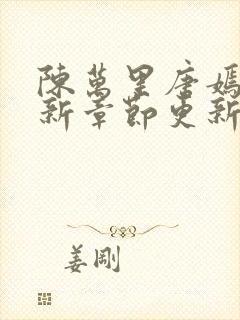 陳萬里唐嫣
新章節更新
姜剛